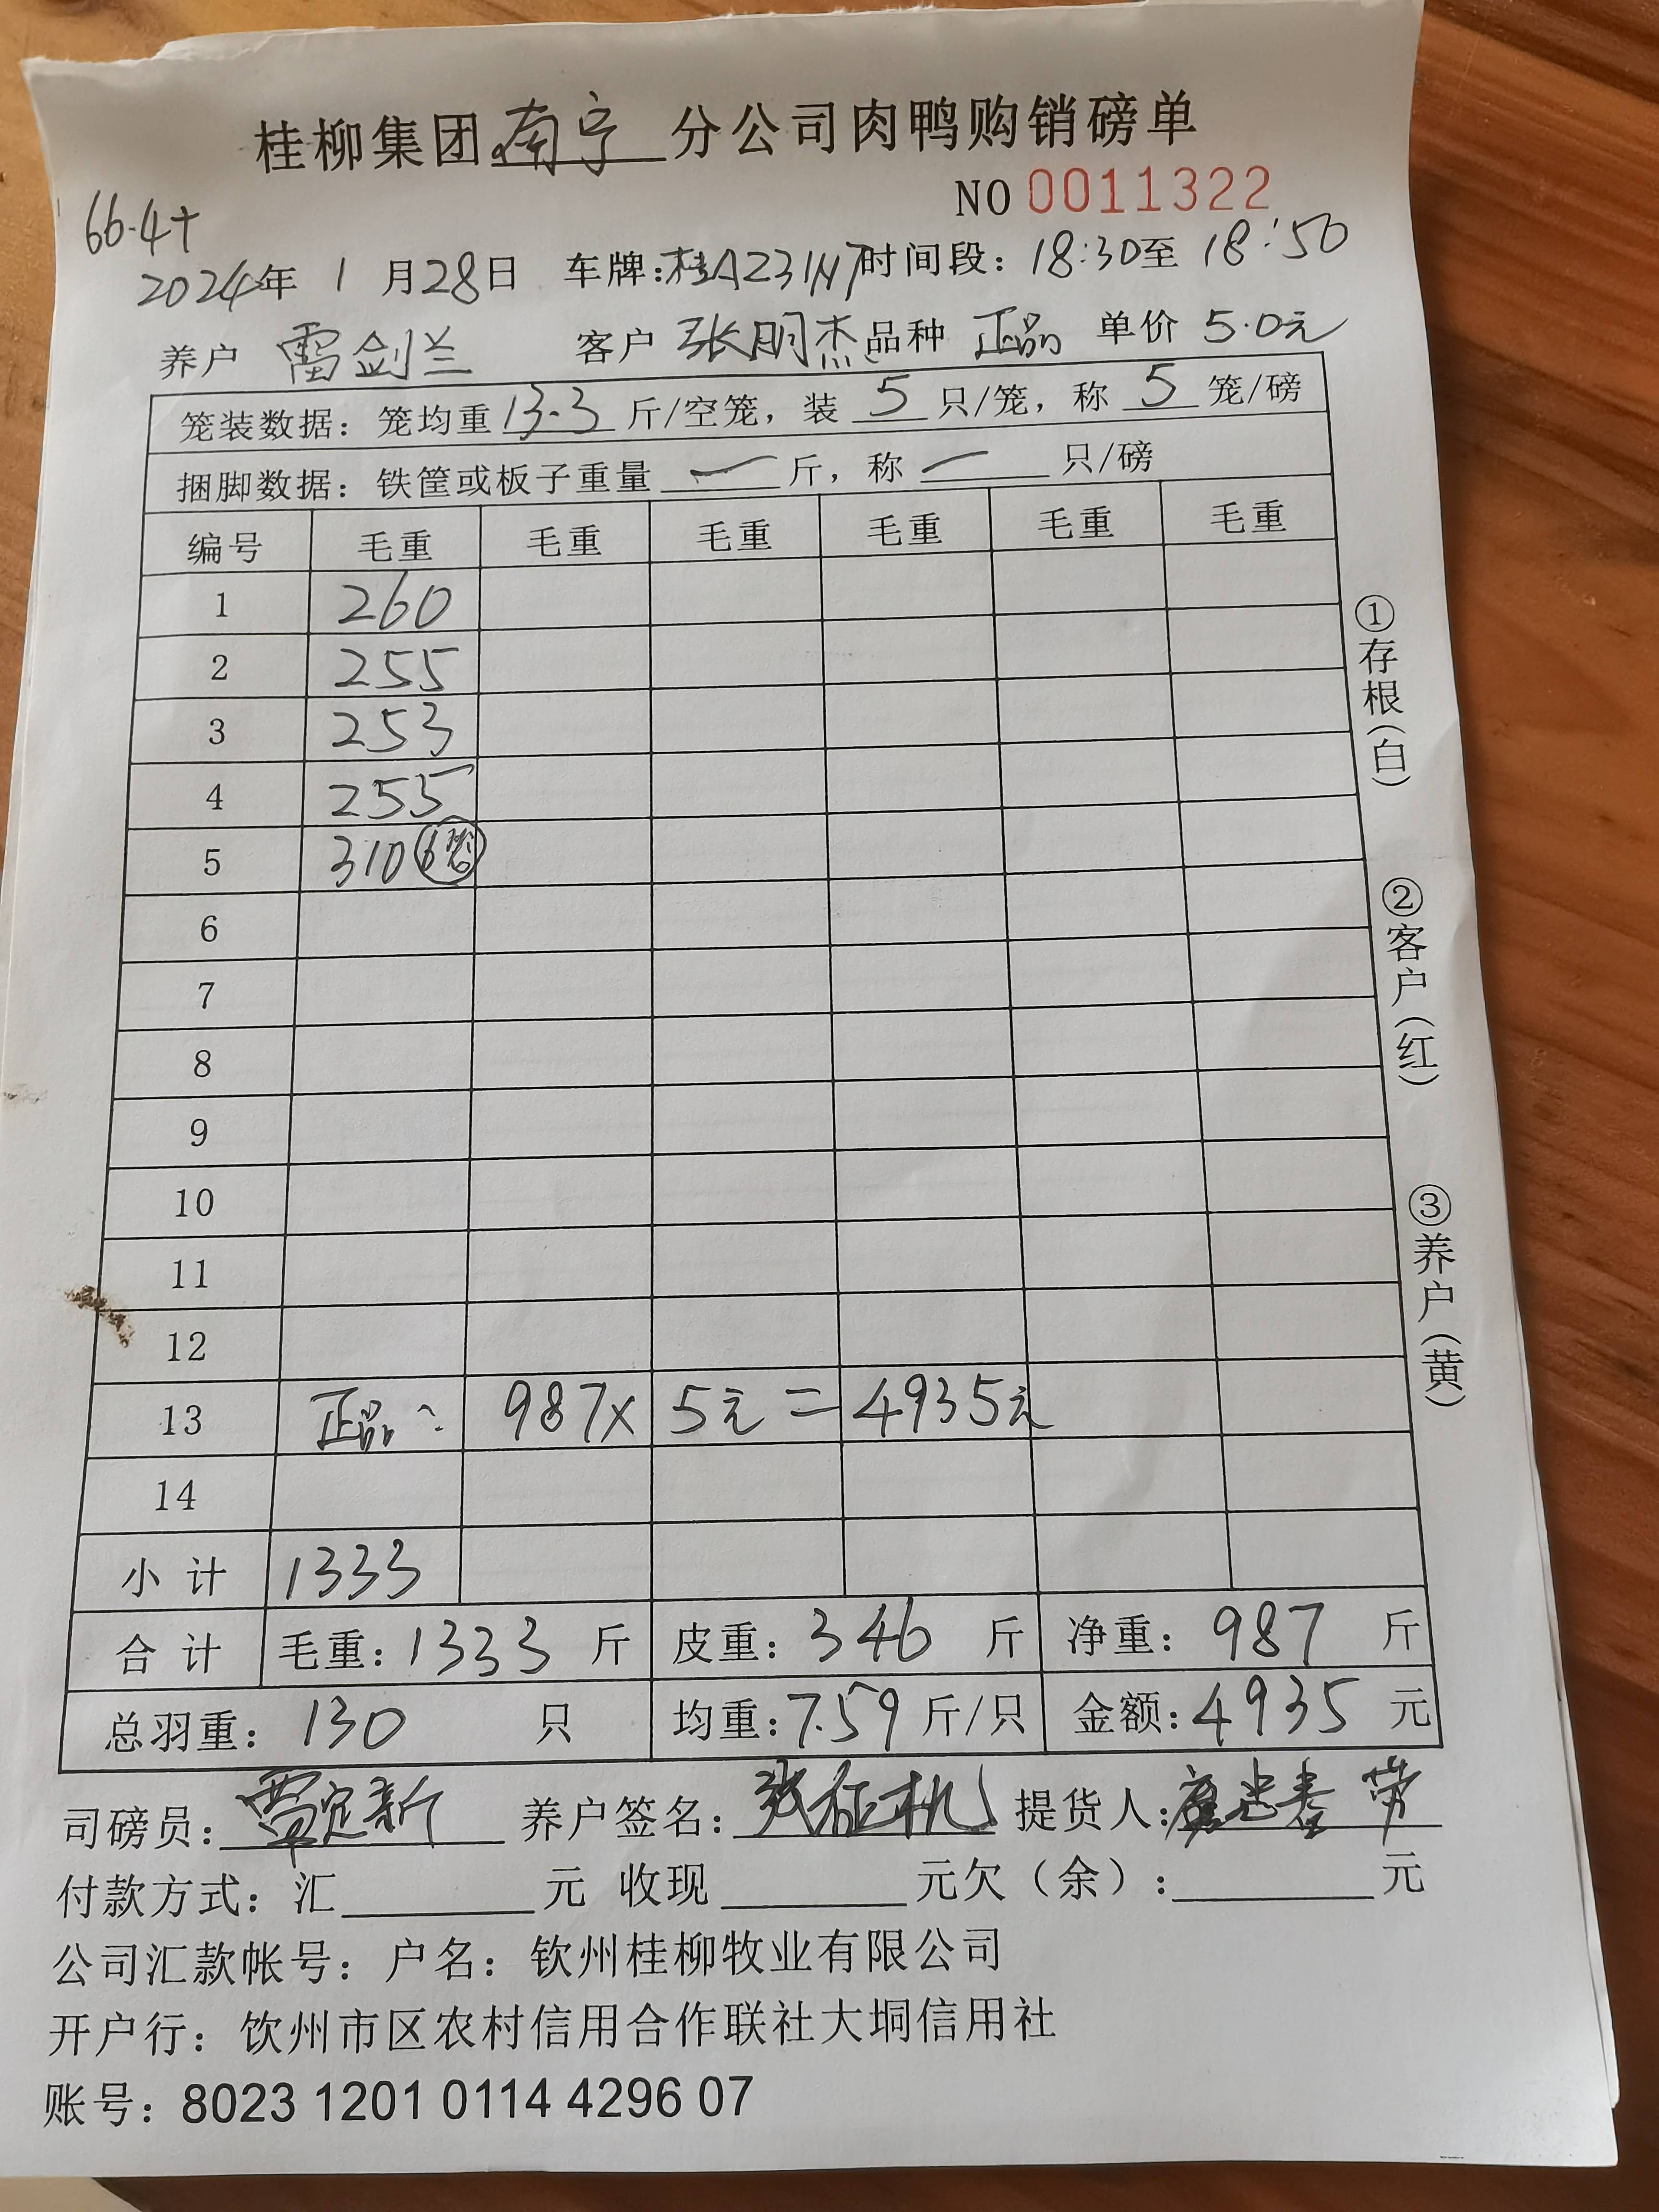 桂柳集团南宁分公司肉鸭购销磅单
NO 0011322
66.4+
2024年 1 月28日 车牌:桂AZ31N7 时间段: 18:30至 18:50
养户 雷剑兰 客户 张明杰 品种 正品 单价 5.0元
笼装数据: 笼均重 13.3 斤/空笼, 装 5 只/笼, 称 5 笼/磅
捆脚数据: 铁筐或板子重量 — 斤, 称 — 只/磅
编号 毛重 毛重 毛重 毛重 毛重 毛重
1 260
2 255
3 253
4 255
5 310 6笼
6
7
8
9
10
11
12
13 正品: 987× 5元 = 4935元
14
小 计 1333
合 计 毛重: 1333 斤 皮重: 346 斤 净重: 987 斤
总羽重: 130 只 均重: 7.59 斤/只 金额: 4935 元
司磅员: 雷定新 养户签名: 张征机 提货人:
付款方式: 汇 元 收现 元欠(余): 元
公司汇款帐号: 户名: 钦州桂柳牧业有限公司
开户行: 饮州市区农村信用合作联社大垌信用社
账号: 8023 1201 0114 4296 07
①存根(白)
②客户(红)
③养户(黄)